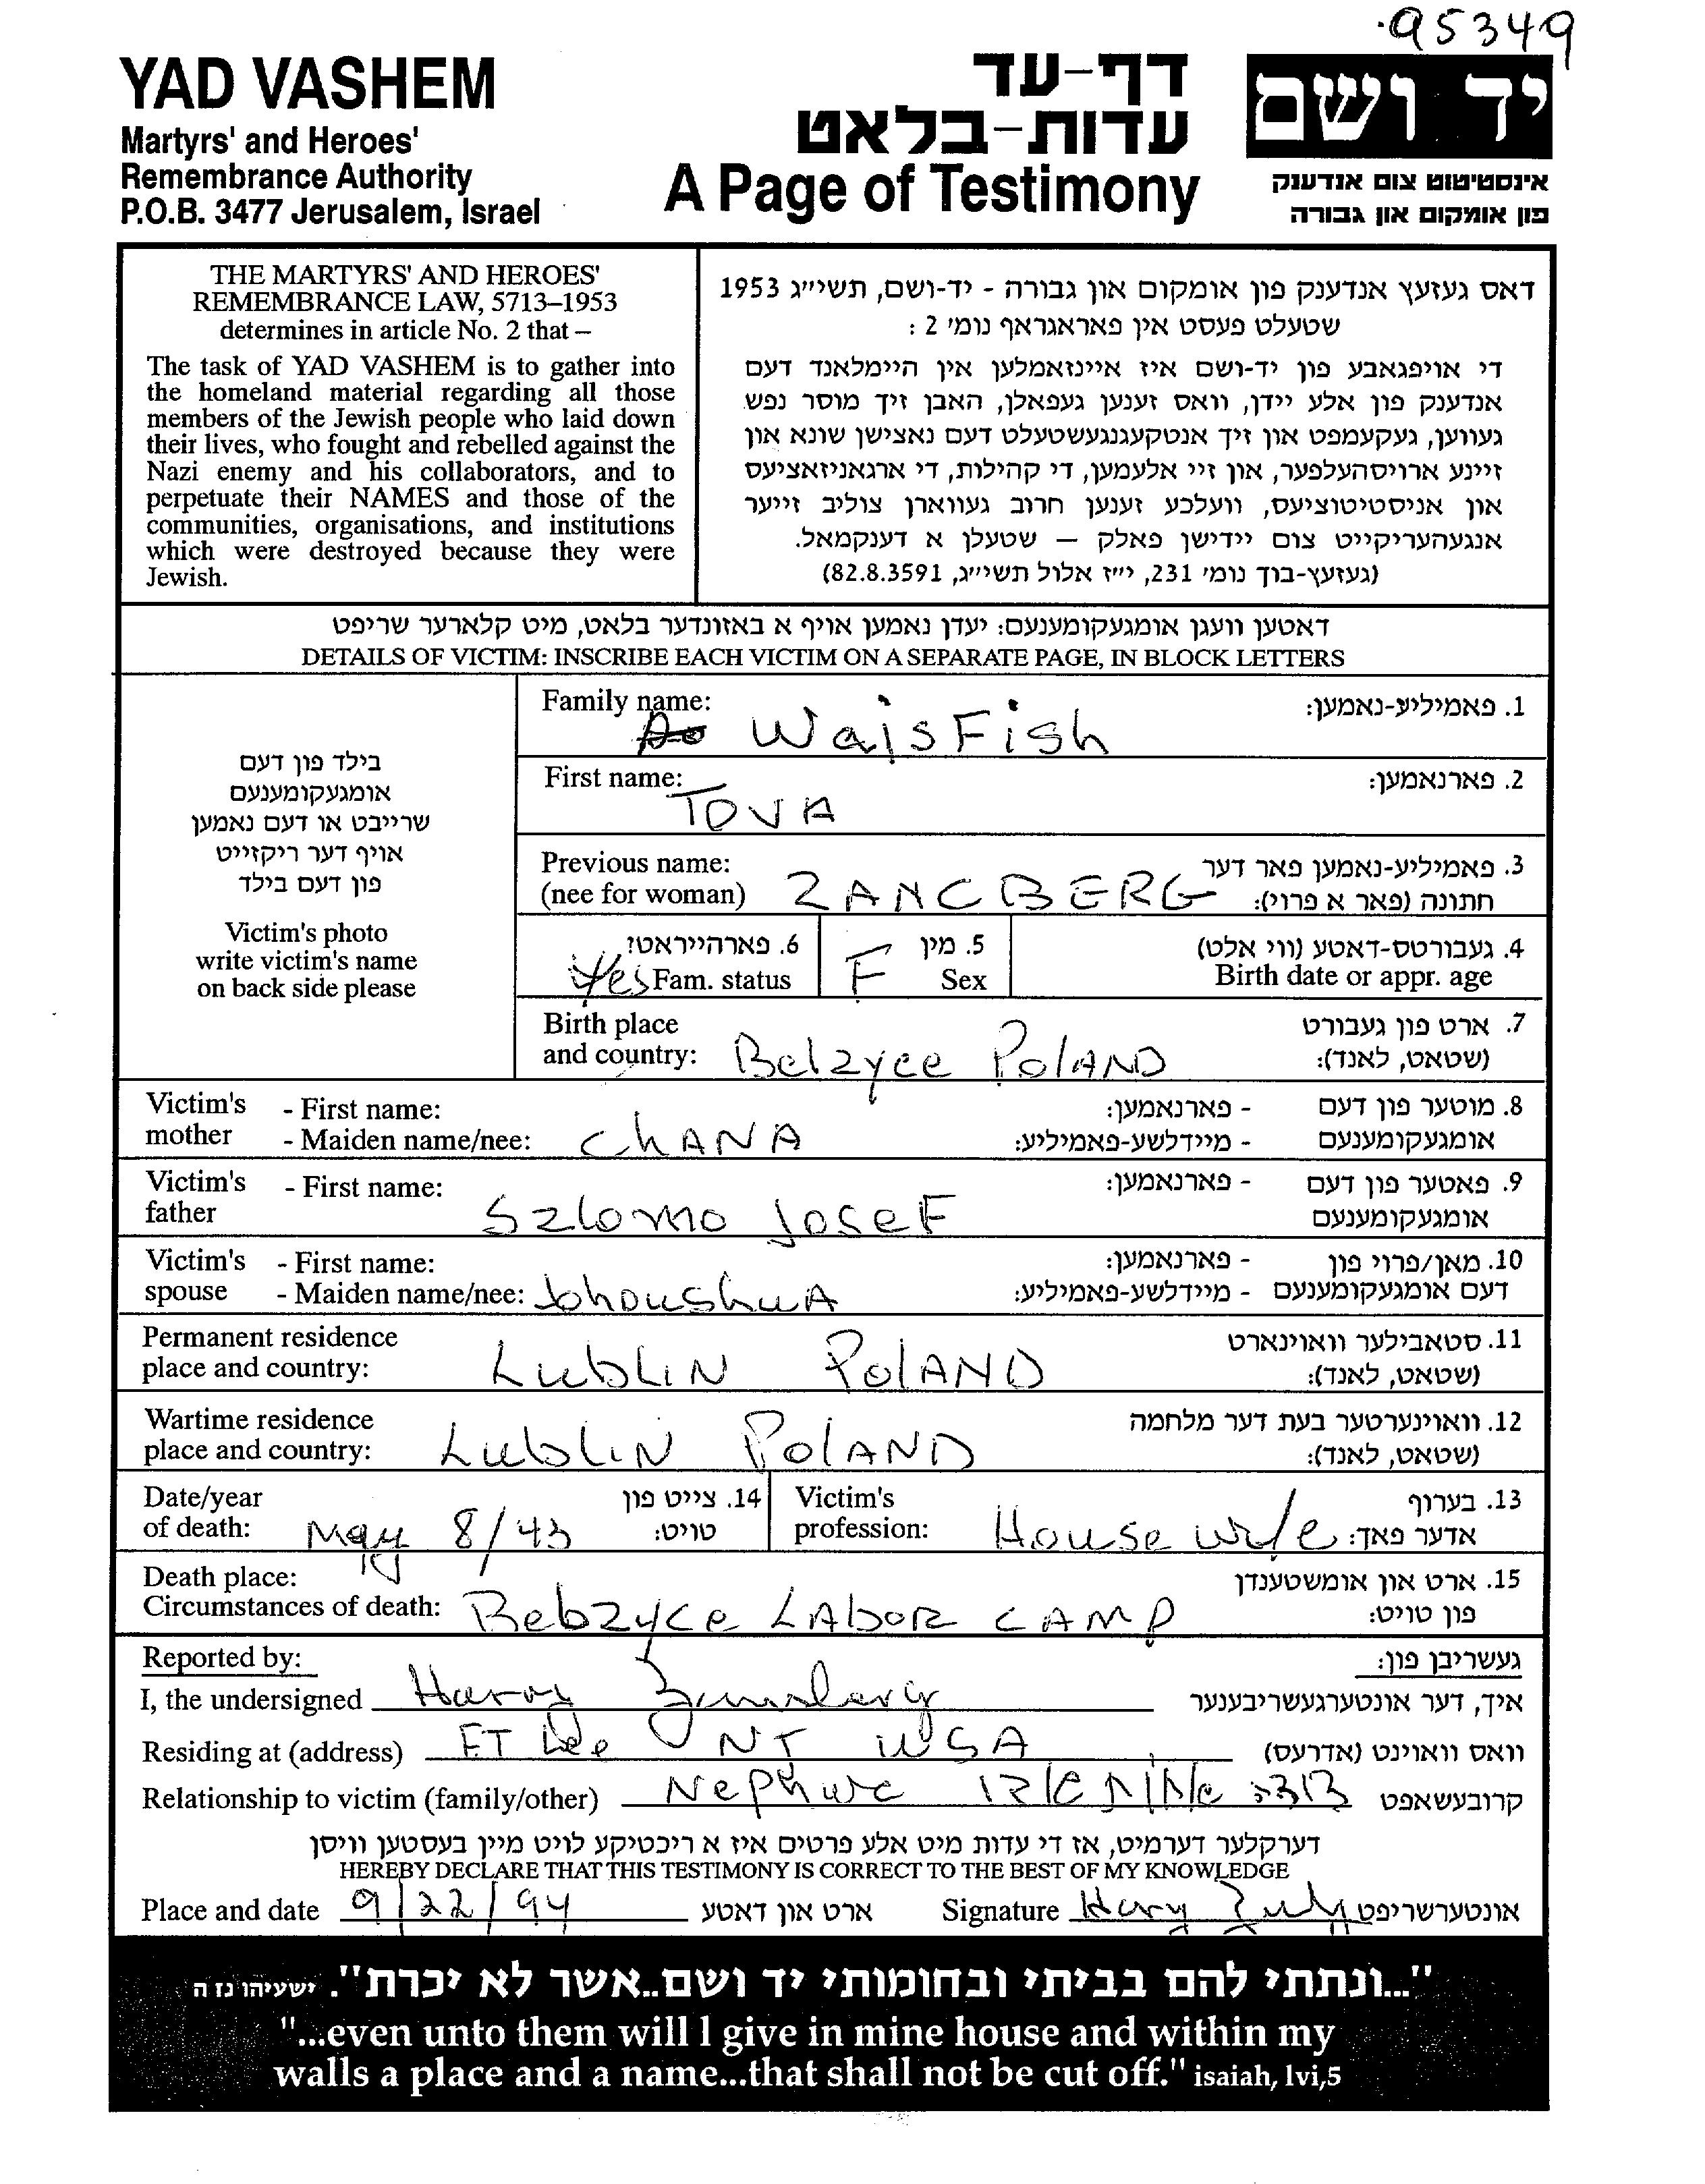 95349
YAD VASHEM
Martyrs' and Heroes'
Remembrance Authority
P.O.B. 3477 Jerusalem, Israel
דף-עד
עדות-בלאט
A Page of Testimony
יד ושם
אינסטיטוט צום אנדענק
פון אומקום און גבורה
THE MARTYRS' AND HEROES'
REMEMBRANCE LAW, 5713–1953
determines in article No. 2 that –
The task of YAD VASHEM is to gather into
the homeland material regarding all those
members of the Jewish people who laid down
their lives, who fought and rebelled against the
Nazi enemy and his collaborators, and to
perpetuate their NAMES and those of the
communities, organisations, and institutions
which were destroyed because they were
Jewish.
דאס געזעץ אנדענק פון אומקום און גבורה - יד-ושם, תשי״ג 1953
שטעלט פעסט אין פאראגראף נומ׳ 2 :
די אויפגאבע פון יד-ושם איז איינזאמלען אין היימלאנד דעם
אנדענק פון אלע יידן, וואס זענען געפאלן, האבן זיך מוסר נפש
געווען, געקעמפט און זיך אנטקעגנגעשטעלט דעם נאצישן שונא און
זיינע ארויסהעלפער, און זיי אלעמען, די קהילות, די ארגאניזאציעס
און אניסטיטוציעס, וועלכע זענען חרוב געווארן צוליב זייער
אנגעהעריקייט צום יידישן פאלק — שטעלן א דענקמאל.
(געזעץ-בוך נומ׳ 231, י״ז אלול תשי״ג, 82.8.3591)
דאטען וועגן אומגעקומענעם: יעדן נאמען אויף א באזונדער בלאט, מיט קלארער שריפט
DETAILS OF VICTIM: INSCRIBE EACH VICTIM ON A SEPARATE PAGE, IN BLOCK LETTERS
בילד פון דעם
אומגעקומענעם
שרייבט או דעם נאמען
אויף דער ריקזייט
פון דעם בילד
Victim's photo
write victim's name
on back side please
Family name: WaisFish 1. פאמיליע-נאמען:
First name: TOVA 2. פארנאמען:
Previous name: 3. פאמיליע-נאמען פאר דער
(nee for woman) ZANCBERG חתונה (פאר א פרוי):
6. פארהייראט? 5. מין 4. געבורטס-דאטע (ווי אלט)
Yes Fam. status F Sex Birth date or appr. age
Birth place 7. ארט פון געבורט
and country: Belzyce PolAND (שטאט, לאנד):
Victim's - First name: - פארנאמען: 8. מוטער פון דעם
mother - Maiden name/nee: ChANA - מיידלשע-פאמיליע: אומגעקומענעם
Victim's - First name: - פארנאמען: 9. פאטער פון דעם
father Szlomo JoseF אומגעקומענעם
Victim's - First name: - פארנאמען: 10. מאן/פרוי פון
spouse - Maiden name/nee: JohoushuA - מיידלשע-פאמיליע: דעם אומגעקומענעם
Permanent residence 11. סטאבילער וואוינארט
place and country: LubLiN PolAND (שטאט, לאנד):
Wartime residence 12. וואוינערטער בעת דער מלחמה
place and country: LubLiN PolAND (שטאט, לאנד):
Date/year 14. צייט פון Victim's 13. בערוף
of death: May 8/43 טויט: profession: House wife אדער פאך:
Death place: 15. ארט און אומשטענדן
Circumstances of death: Bebzyce LAboR CAMP פון טויט:
Reported by: געשריבן פון:
I, the undersigned Harry איך, דער אונטערגעשריבענער
Residing at (address) FT Lee NJ USA וואס וואוינט (אדרעס)
Relationship to victim (family/other) Nephwe קרובעשאפט
דערקלער דערמיט, אז די עדות מיט אלע פרטים איז א ריכטיקע לויט מיין בעסטען וויסן
HEREBY DECLARE THAT THIS TESTIMONY IS CORRECT TO THE BEST OF MY KNOWLEDGE
Place and date 9/22/94 ארט און דאטע Signature Harry אונטערשריפט
"...ונתתי להם בביתי ובחומותי יד ושם..אשר לא יכרת". ישעיהו נז ה
"...even unto them will I give in mine house and within my
walls a place and a name...that shall not be cut off." isaiah, lvi,5